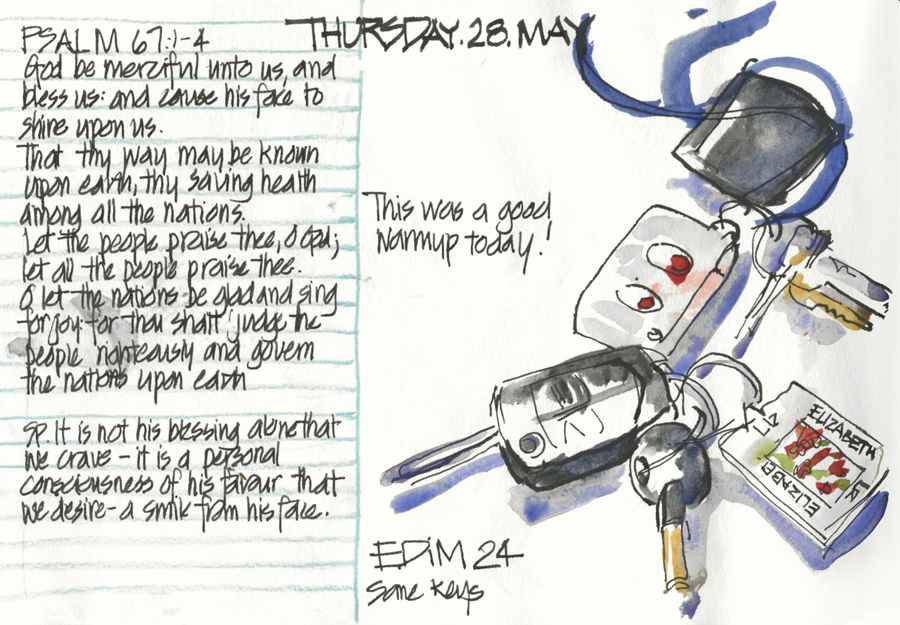 THURSDAY. 28. MAY
PSALM 67:1-4
God be merciful unto us, and
bless us: and cause his face to
shine upon us.
That thy way may be known
upon earth, thy saving health
among all the nations.
Let the people praise thee, O God;
let all the people praise thee.
O let the nations be glad and sing
for joy: for thou shalt judge the
people righteously and govern
the nations upon earth
SP. It is not his blessing alone that
we crave - it is a personal
consciousness of his favour that
we desire - a smile from his face.
This was a good
Warmup today!
ELIZABETH
ELIZABE
EDiM 24
Some Keys